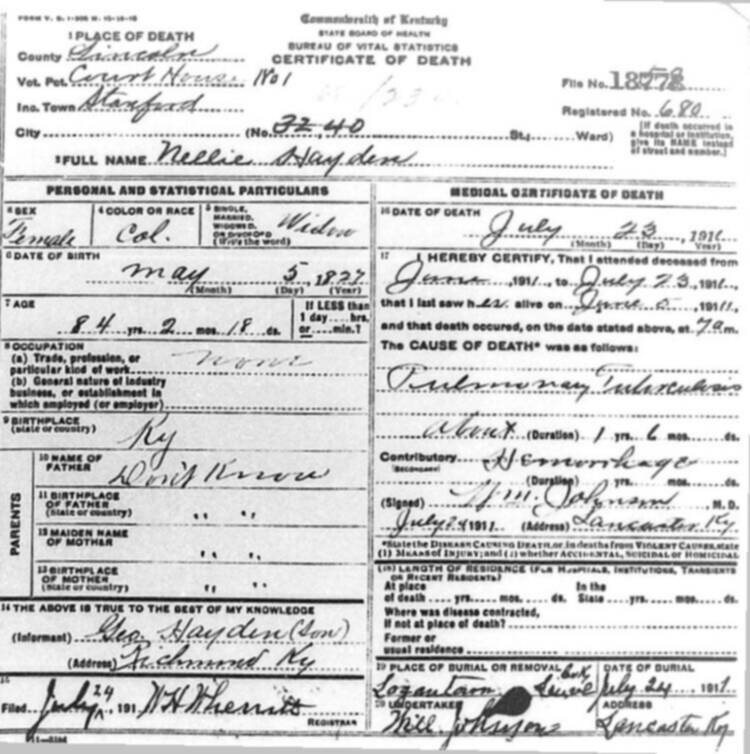 FORM V. S. 1
Commonwealth of Kentucky
STATE BOARD OF HEALTH
BUREAU OF VITAL STATISTICS
CERTIFICATE OF DEATH
1 PLACE OF DEATH
County Lincoln
Vot. Pct. Court House No 1
Inc. Town Stanford
City (No. 32,40 St., Ward)
File No. 18778
Registered No. 680
[If death occurred in a hospital or institution, give its NAME instead of street and number.]
2 FULL NAME Nellie Hayden
PERSONAL AND STATISTICAL PARTICULARS
3 SEX Female
4 COLOR OR RACE Col.
5 SINGLE, MARRIED, WIDOWED, OR DIVORCED (Write the word) Widow
6 DATE OF BIRTH
May 5 1827
(Month) (Day) (Year)
7 AGE
84 yrs. 2 mos. 18 ds.
If LESS than 1 day....hrs. or....min.?
8 OCCUPATION
(a) Trade, profession, or particular kind of work none
(b) General nature of industry business, or establishment in which employed (or employer)
9 BIRTHPLACE
(State or country) Ky
PARENTS
10 NAME OF FATHER Don't Know
11 BIRTHPLACE OF FATHER (State or country) " "
12 MAIDEN NAME OF MOTHER " "
13 BIRTHPLACE OF MOTHER (State or country) " "
14 THE ABOVE IS TRUE TO THE BEST OF MY KNOWLEDGE
(Informant) Geo. Hayden (Son)
(Address) Richmond Ky
15
Filed July 24 191 WH Wherritt
REGISTRAR
MEDICAL CERTIFICATE OF DEATH
16 DATE OF DEATH
July 23, 1911
(Month) (Day) (Year)
17 I HEREBY CERTIFY, That I attended deceased from
June 1911, to July 23, 1911,
that I last saw her alive on June 5 1911,
and that death occured, on the date stated above, at 7 a m.
The CAUSE OF DEATH* was as follows:
Pulmonary Tuberculosis
about (Duration) 1 yrs. 6 mos. ds.
Contributory Hemorrhage
(SECONDARY)
(Duration) yrs. mos. ds.
(Signed) Wm. Johnson M. D.
July 24 1911 (Address) Lancaster Ky
*State the DISEASE CAUSING DEATH, or, in deaths from VIOLENT CAUSES, state
(1) MEANS OF INJURY; and (2) whether ACCIDENTAL, SUICIDAL or HOMICIDAL
(18) LENGTH OF RESIDENCE (FOR HOSPITALS, INSTITUTIONS, TRANSIENTS
OR RECENT RESIDENTS)
At place of death yrs. mos. ds. In the State yrs. mos. ds.
Where was disease contracted,
if not at place of death?
Former or
usual residence
19 PLACE OF BURIAL OR REMOVAL
Logantown
DATE OF BURIAL
July 24, 1911
20 UNDERTAKER
Will Johnson
ADDRESS
Lancaster Ky